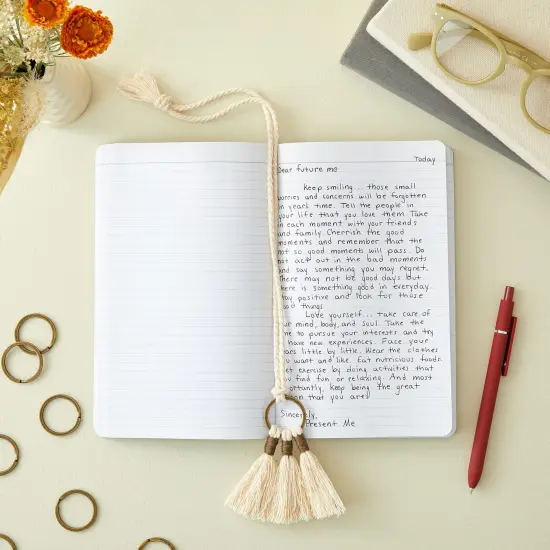 Today
Dear future me
Keep smiling... those small
worries and concerns will be forgotten
in years time. Tell the people in
your life that you love them. Take
in each moment with your friends
and family. Cherrish the good
moments and remember that the
not so good moments will pass. Do
not act out in the bad moments
and say something you may regret.
There may not be good days. But
there is something good in everyday.
Stay positive and look for those
good things.
Love yourself... take care of
your mind, body, and soul. Take the
time to pursue your interests and try
have new experiences. Face your
fears little by little. Wear the clothes
you want and like. Eat nutricious foods.
Get exercise by doing activities that
you find fun or relaxing. And most
importantly, keep being the great
person that you are!
Sincerely,
Present Me